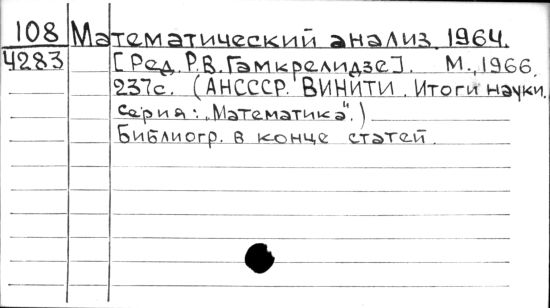 108 Математический анализ. 1964.
4283 [Ред. Р.В. Гамкрелидзе]. М., 1966.
237с. (АНСССР. ВИНИТИ. Итоги науки.
серия: „Математика".)
Библиогр. в конце статей.